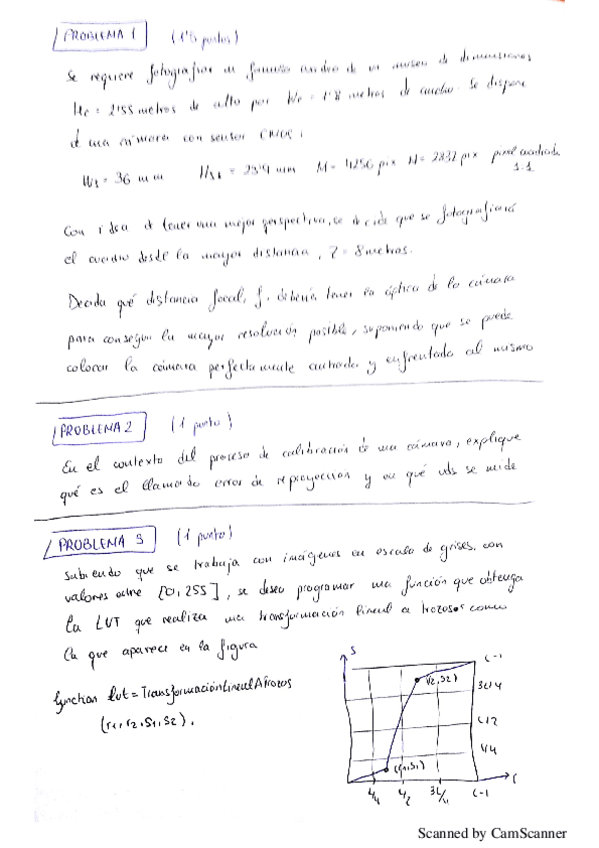 PROBLEMA 1 (1'5 puntos)
Se requiere fotografiar un famoso cuadro de un museo de dimensiones
Hc = 2'55 metros de alto por Wc = 1'8 metros de ancho. Se dispone
d una cámara con sensor CMOS:
Ws = 36 mm Hs = 23'9 mm M = 4256 pix N = 2832 pix pixel cuadrado
1-1
Con idea d tener una mejor perspectiva, se decide que se fotografiará
el cuadro desde la mayor distancia, Z = 8 metros.
Decida qué distancia focal, f, debería tener la óptica de la cámara
para conseguir la mayor resolución posible, suponiendo que se puede
colocar la cámara perfectamente centrada y enfrentada al mismo
PROBLEMA 2 (1 punto)
En el contexto del proceso de calibración d una cámara, explique
qué es el llamado error de reproyección y en qué uds se mide
PROBLEMA 3 (1 punto)
Sabiendo que se trabaja con imágenes en escala de grises, con
valores entre [0, 255], se desea programar una función que obtenga
la LUT que realiza una transformación lineal a trozos como
la que aparece en la figura
function lut = TransformaciónLinealATrozos
(r1, r2, s1, s2).
S
L-1
(r2, s2)
3L/4
L/2
L/4
(r1, s1)
r
L/4 L/2 3L/4 L-1
Scanned by CamScanner